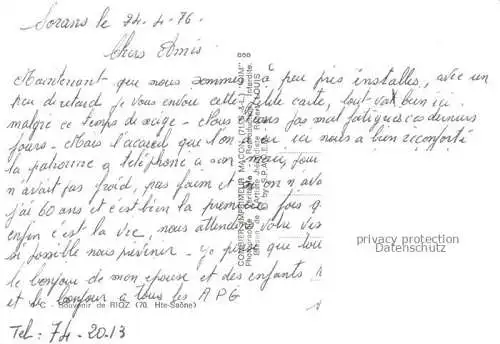 Sorans le 24-4-76.
Chers Amis
Maintenant que nous sommes à peu près installés, avec un
peu de retard je vous envoie cette petite carte, tout va bien ici
malgré ce temps de neige - Nous pas mal fatigués ces derniers
jours - Mais l'accueil que l'on a eu ici nous a bien réconforté
la patronne a téléphoné a son mari, pour
n'avait pas froid, pas faim et on n'ava
j'ai 60 ans et c'est bien la première fois q
enfin c'est la vie, nous attendons votre vis
si possible nous prévenir - je pense que tou
le bonjour de mon epouse et des enfants !!
et le bonjour a tous les A P G
Tel: 74-20.13
Souvenir de RIOZ (70. Hte-Saône)
COMBIER IMPRIMEUR MACON (S.-&-L.) "CIM"
privacy protection
Datenschutz